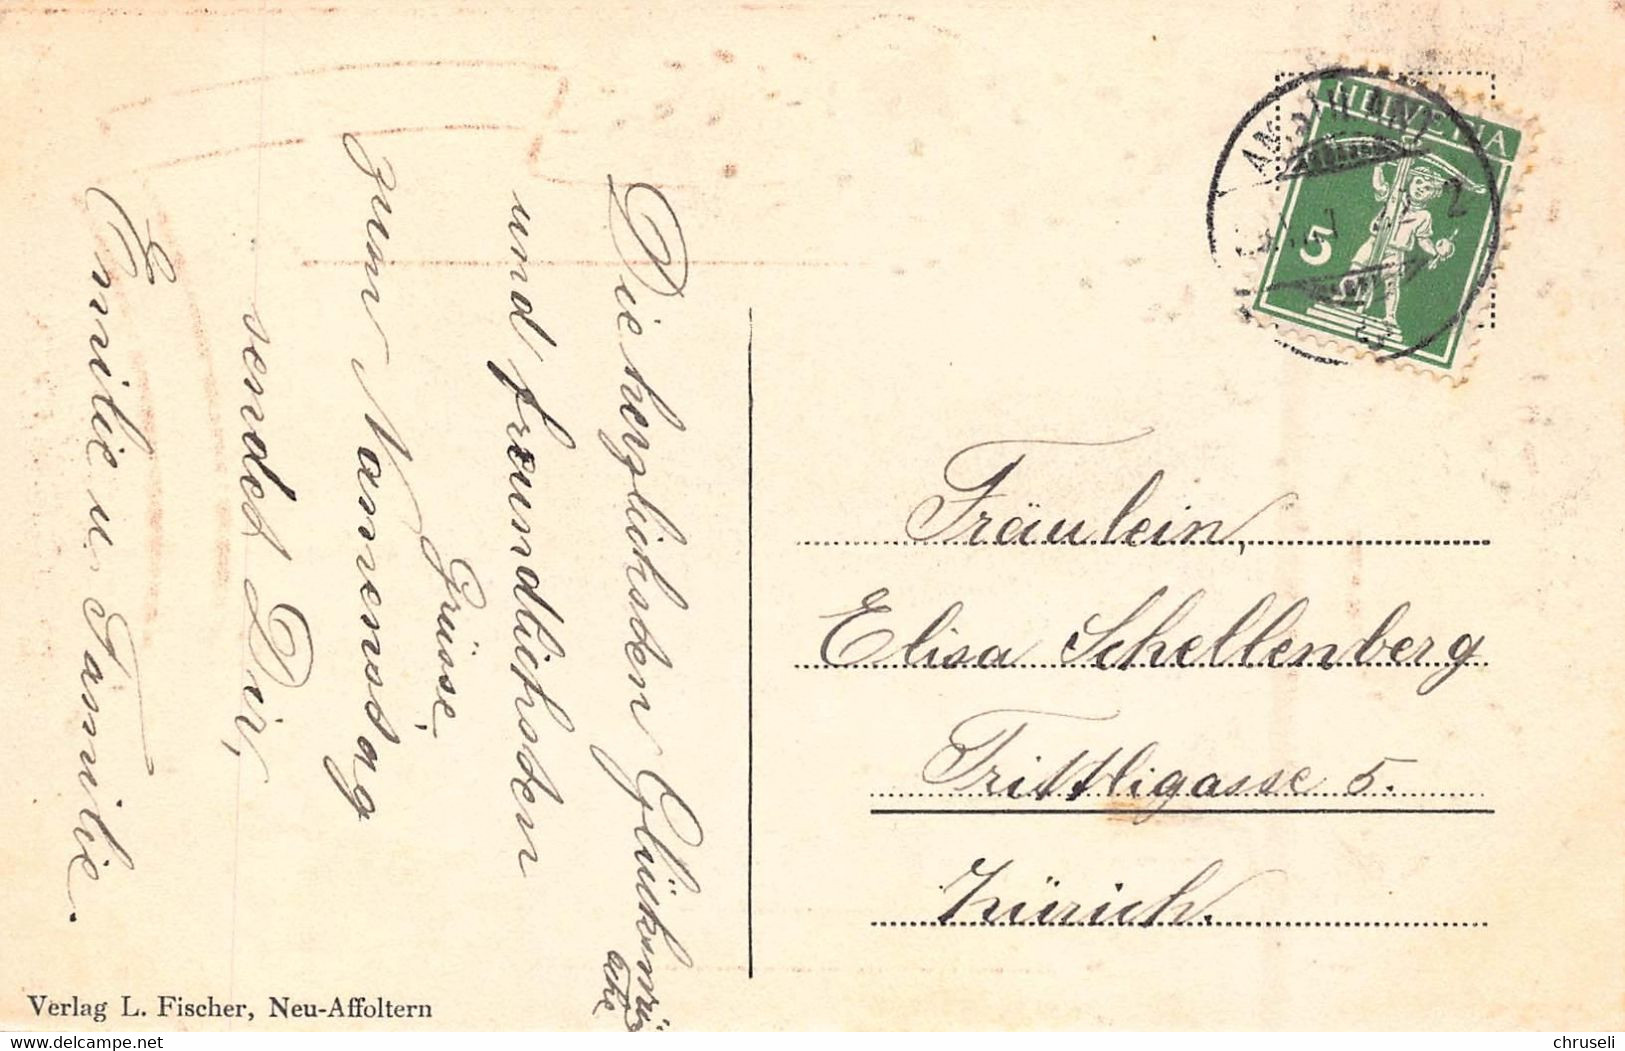 HELVETIA
5
Fräulein,
Elisa Schellenberg
Trittligasse 5.
Zürich.
Die herzlichsten Glückwünsche
und freundlichsten
Grüsse,
zum Namenstag
sendet Dir,
Emilie u. Familie.
Verlag L. Fischer, Neu-Affoltern
www.delcampe.net
chruseli